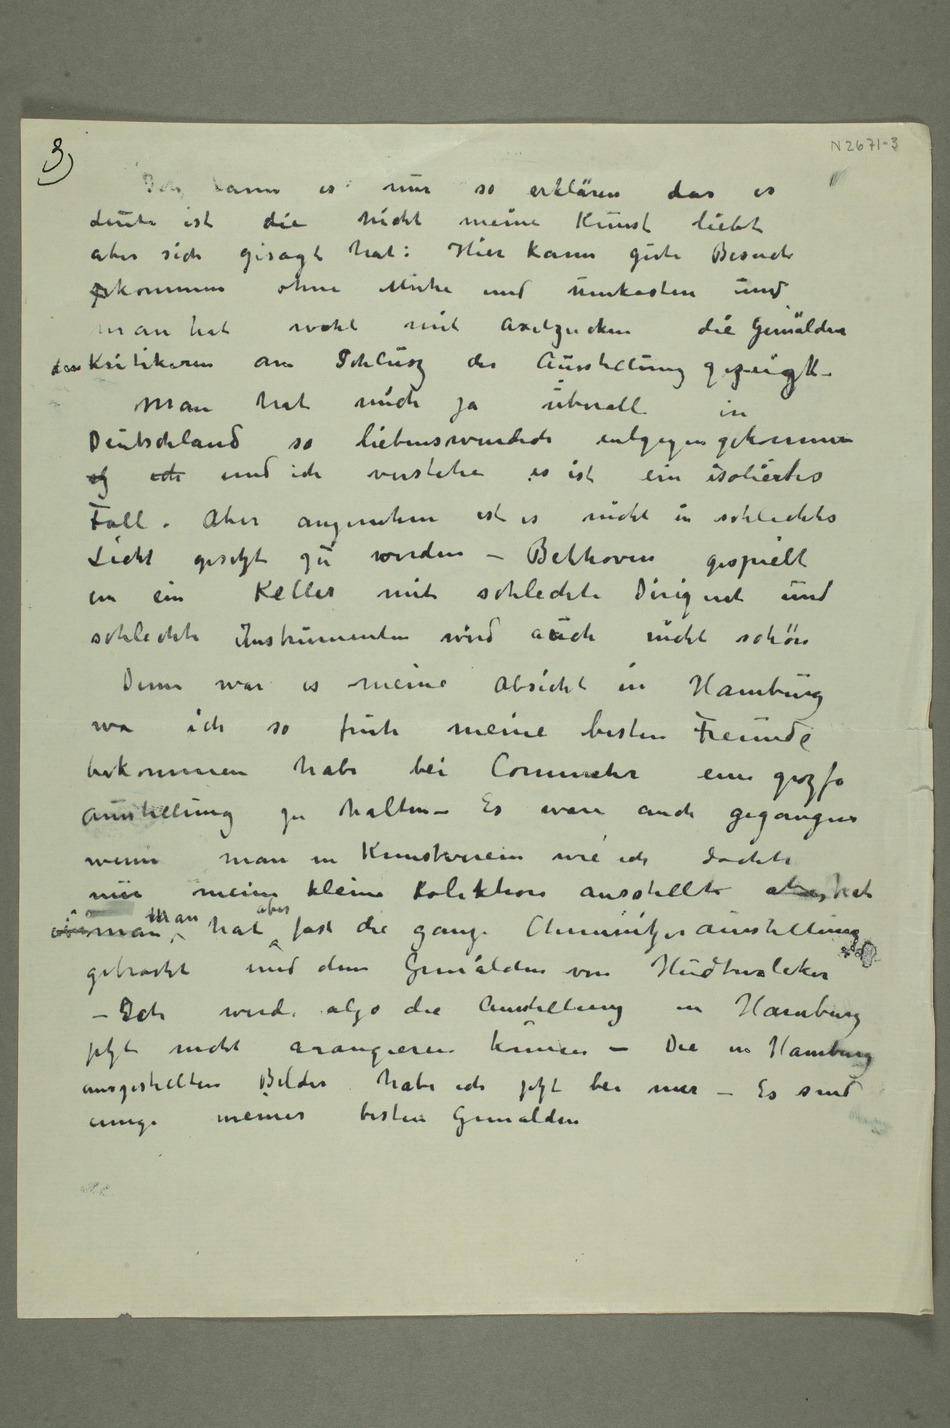 3)
N 2671-3
Ich kann es nur so erklären das es
Leute ist die nicht meine Kunst liebt
aber sich gesagt hat: Hier kann gute Besuch
kommen ohne Mühe und unkosten und
man hat wohl mit Axelzucken die Gemälden
den Kritikeren am Schlusz der Ausstellung gezeigt –
Man hat mich ja überall in
Deutschland so liebenswurdich entgegengekommen
og ich und ich verstehe es ist ein isoliertes
Fall. Aber angenehm ist es nicht in schlechtes
Licht gesetzt zu werden – Bethoven gespielt
in ein Keller mit schlechte Dirigent und
schlechte Instrumenten wird auch nicht schön
Denn war es meine Absicht in Hamburg
wo ich so früh meine besten Freunde
bekommen habe bei Commeter eine grozse
Ausstellung zu halten – Es wäre auch gegangen
wenn man in Kunstverein wie ich dachte
nur meine kleine Kolektion ausstellte
man man hat aber fast die ganze Chemnitzerausstellung
gebracht und dem Gemälden von Hudtwalcker
– Ich werde also die Ausstellung in Hamburg
jetzt nicht arangieren können – Die in Hamburg
ausgestellten Bilder habe ich jetzt bei mir – Es sind
einige meiner besten Gemälden